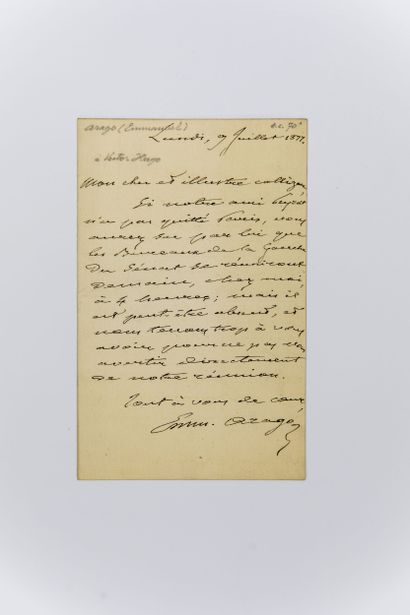 Arago (Emmanuel)
à Victor Hugo
Lundi, 9 Juillet 1877.
Mon cher et illustre collègue,
Si notre ami
n'a pas quitté Paris, vous
aurez su par lui que
les Bureaux de la Gauche
du Sénat se réuniront
Demain, chez moi,
à 4 heures; mais il
est peut-être absent, et
nous tenons trop à vous
avoir pour ne pas vous
avertir directement
de notre réunion.
Tout à vous de cœur
Emm. Arago